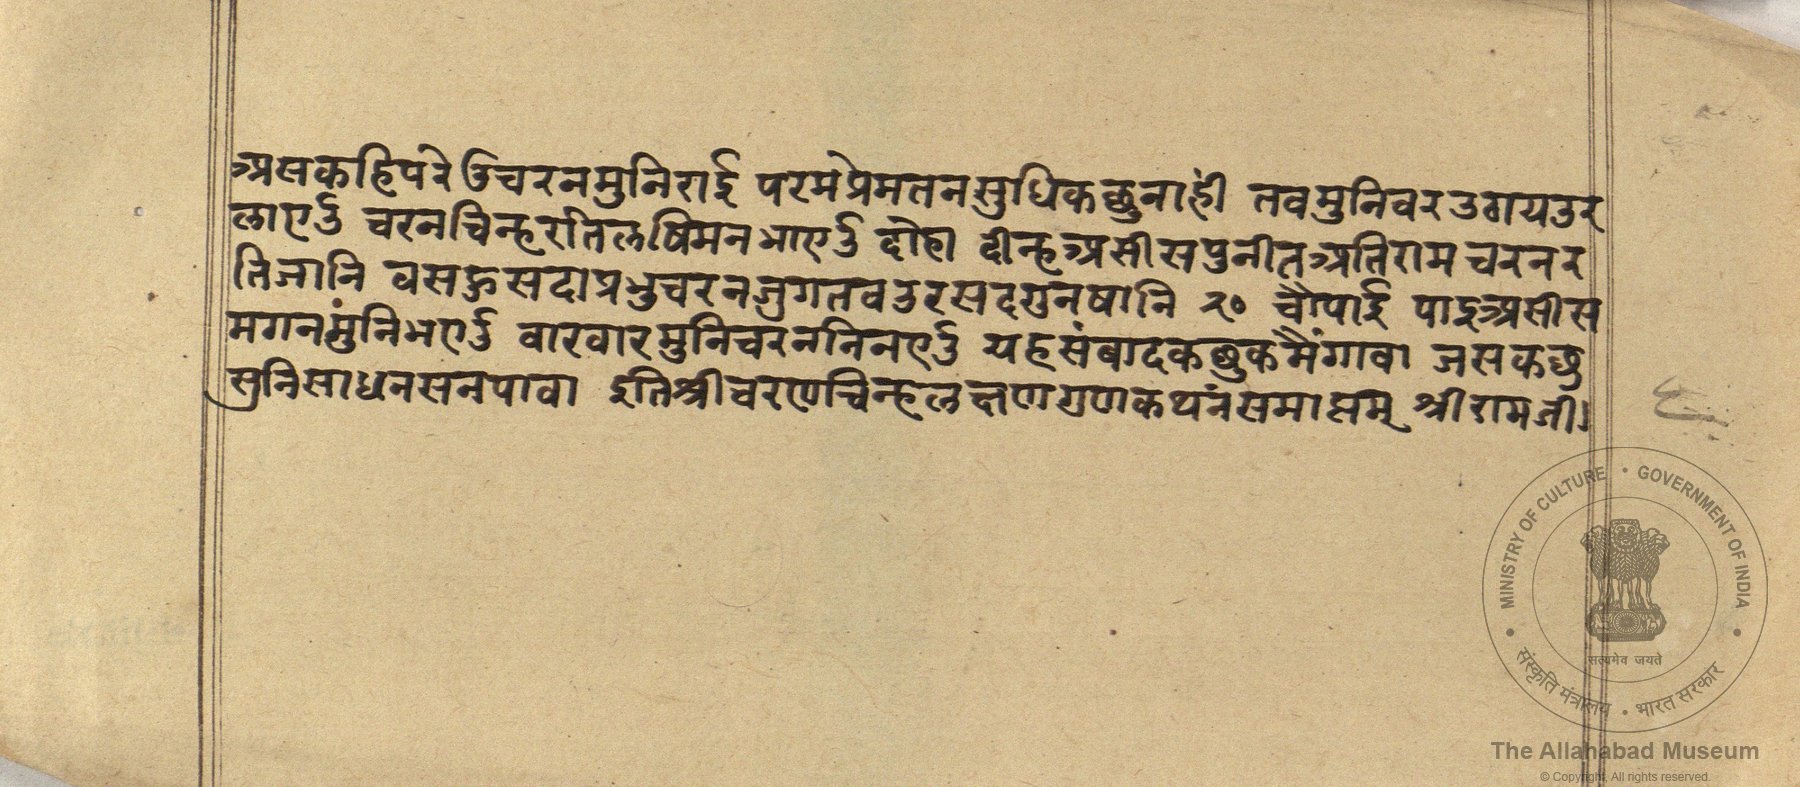 असकहिपरेउचरनमुनिराई परमप्रेमतनसुधिकछुनाही तवमुनिवरउठायउर
लाएउ चरनचिन्हरतिलषिमनभाएउ दोहा दीन्हअसीसपुनीतअतिरामचरनर
तिजानि वसहुसदाप्रभुचरनजुगतवउरसदगुनषानि २० चौपाई पाइअसीस
मगनमुंनिभएउ वारवारमुनिचरननिनएउ यहसंवादकछुकमैंगावा जसकछु
सुनिसाधनसनपावा इतिश्रीचरणचिन्हलक्षणगुणकथनंसमाप्तम् श्रीरामजी।
MINISTRY OF CULTURE • GOVERNMENT OF INDIA
सत्यमेव जयते
संस्कृति मंत्रालय • भारत सरकार
The Allahabad Museum
© Copyright, All rights reserved.